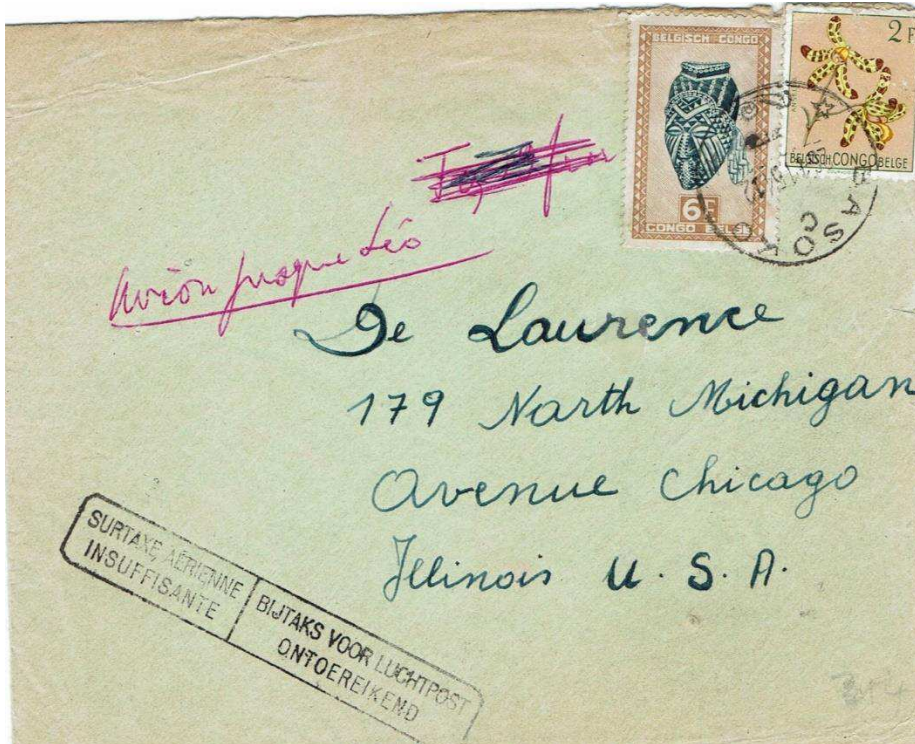 BELGISCH CONGO
6F
CONGO BELGE
2F
BELGISCH CONGO BELGE
BASOKO
C
Avion jusque Léo
De Laurence
179 North Michigan
Avenue Chicago
Illinois U. S. A.
SURTAXE AÉRIENNE
INSUFFISANTE
BIJTAKS VOOR LUCHTPOST
ONTOEREIKEND